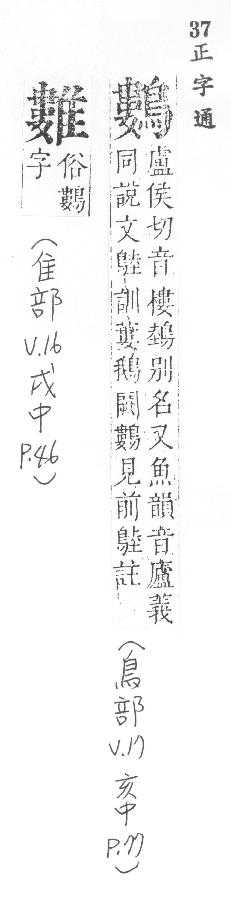 37正字通
鷜盧侯切音樓鵱別名又魚韻音廬義
同說文鵱訓蔞鵝闕鷜見前鵱註
(鳥部 V.17 亥中 P.77)
俗鷜
字
(隹部 V.16 戌中 P.46)